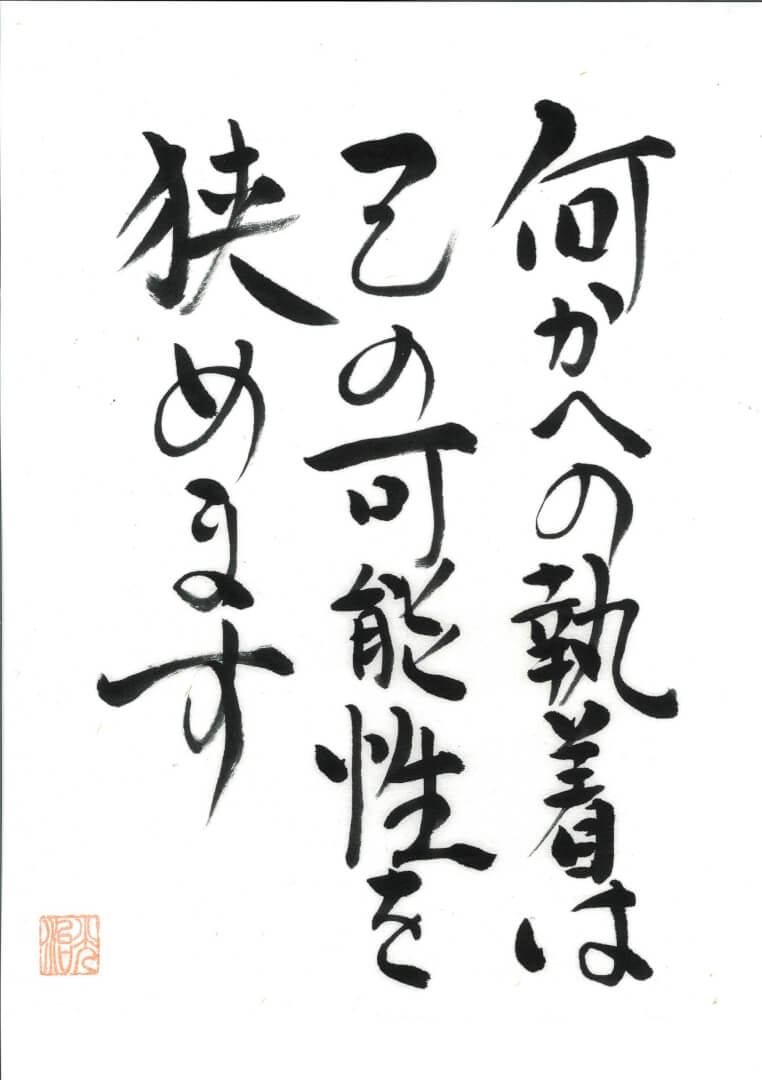 何かへの執着は
己の可能性を
狭めます